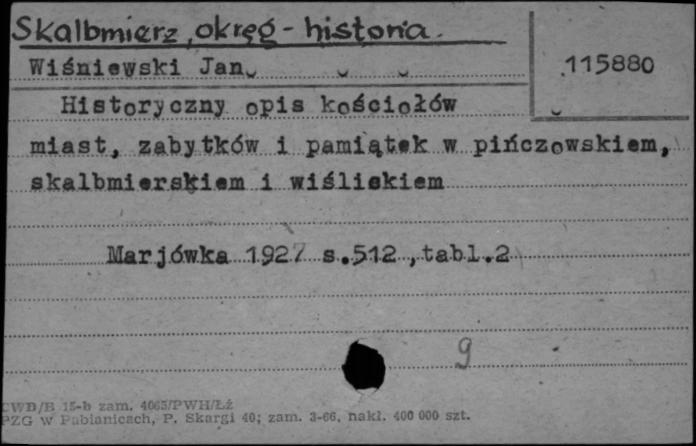 Skalbmierz, okręg - historia.
Wiśniewski Jan
115880
Historyczny opis kościołów
miast, zabytków i pamiątek w pińczowskiem,
skalbmierskiem i wiśliskiem
Marjówka 1927 s.512, tabl.2
9
CWD/B 15-b zam. 4065/PWH/Łż
PZG w Pabianicach, P. Skargi 40; zam. 3-66. nakł. 400 000 szt.